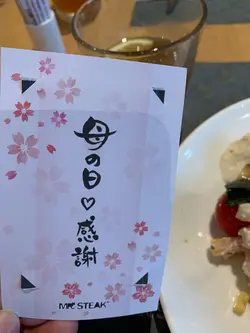 母の日♡感謝
Mr. STEAK